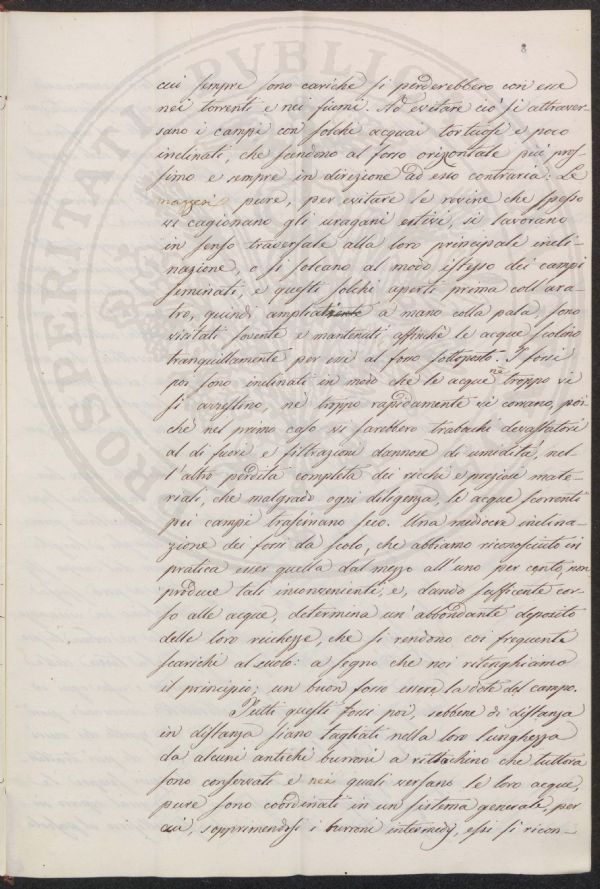 8
PROSPERITATI PUBLICAE
cui sempre sono cariche si perderebbero con esse
nei torrenti e nei fiumi. Ad evitare ciò si attraver-
sano i campi con solchi acquai tortuosi e poco
inclinati, che scendono al fosso orizontale più pros-
simo e sempre in direzione ad esso contraria: Le
maggesi pure, per evitare le rovine che spesso
vi cagionano gli uragani estivi, si lavorano
in senso traversale alla loro principale incli-
nazione, o si solcano al modo istesso dei campi
seminati, e questi solchi aperti prima coll'ara-
tro, quindi ampliati a mano colla pala, sono
visitati sovente e mantenuti affinchè le acque scolino
tranquillamente per essi al fosso sottoposto. I fossi
poi sono inclinati in modo che le acque nè troppo vi
si arrestino, nè troppo rapidamente vi corrano, poi-
chè nel primo caso vi sarebbero trabocchi devastatori
al di fuori e filtrazioni dannose di umidità, nel-
l'altro perdita completa dei ricchi e preziosi mate-
riali, che malgrado ogni diligenza, le acque scorrenti
pei campi trascinano seco. Una mediocre inclina-
zione dei fossi da scolo, che abbiamo riconosciuto in
pratica esser quella dal mezzo all'uno per cento, non
produce tali inconvenienti, e, dando sufficente cor-
so alle acque, determina un'abbondante deposito
delle loro ricchezze, che si rendono con frequenti
scarichi al suolo: a segno che noi ritenghiamo
il principio; un buon fosso essere la dote del campo.
Tutti questi fossi poi, sebbene di distanza
in distanza siano tagliati nella loro lunghezza
da alcuni antichi burroni a rittochino che tuttora
sono conservati e nei quali versano le loro acque,
pure sono coordinati in un sistema generale, per
cui, sopprimendosi i burroni intermedj, essi si ricon-